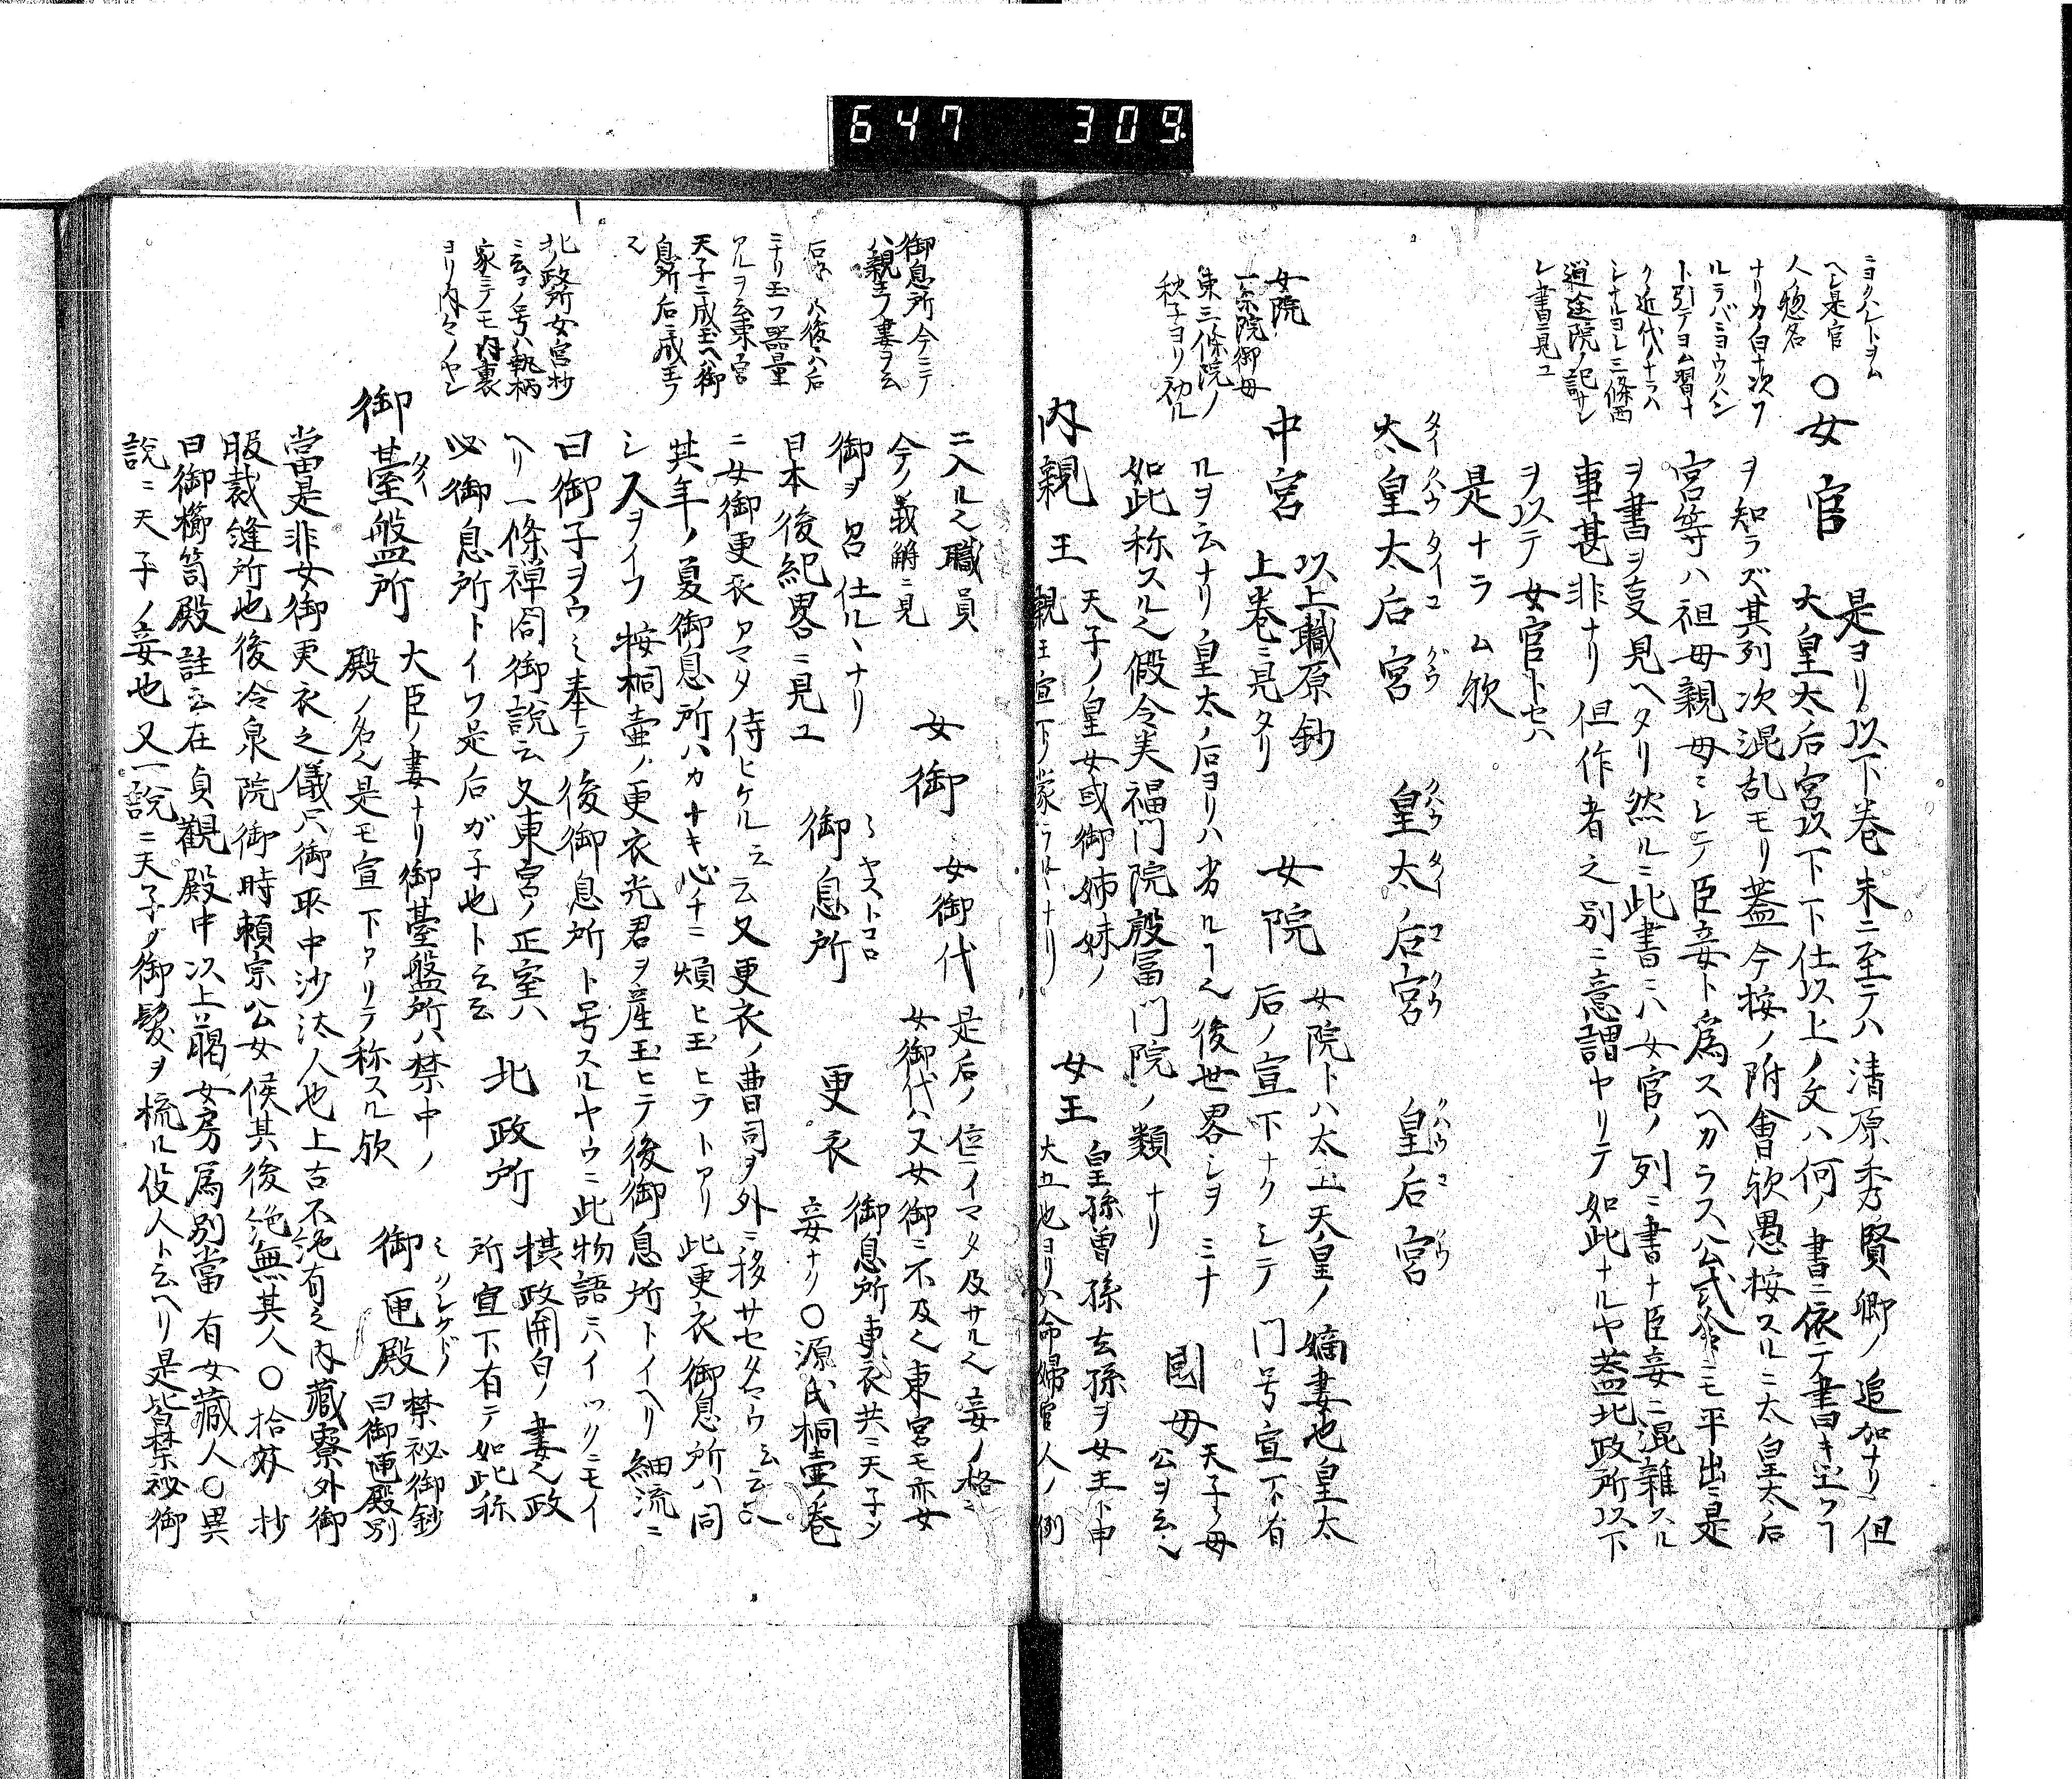 647 309
ニヨクハントヨム
ヘシ是官
人ノ惣名
ナリカノ白ナ次フ
ルラバミヨウクハン
ト引テヨム習ナ
ク近代ノナラハ
シナルヨシ三條西
逍遥院ノ記サレ
シ書ニ見ユ
〇女官
是ヨリ以下巻末ニ至テハ清原秀賢卿ノ追加ナリ但
大皇太后宮以下下仕以上ノ文ハ何ノ書ニ依テ書キ玉フヿ
ヲ知ラズ其列次混乱モリ蓋今按ノ附會欤愚按スルニ太皇太后
宮等ハ祖母親母ニシテ臣妾ト為スヘカラス公式令ニモ平出ニ是
ヲ書ヲ支見ヘタリ然ルニ此書ニハ女官ノ列ニ書ナ臣妾ニ混雑スル
事甚非ナリ但作者之別ニ意謂ヤリテ如此ナルヤ蓋北政所以下
ヲ以テ女官トセハ
是ナラム欤
太皇太后宮 皇太后宮 皇后宮
タイクハウタイコグウ クハウタイコクウ クハウコグウ
女院
一条院御母
東三條院ノ
秋子ヨリ初ル
中宮
以上職原鈔
上巻ニ見タリ
女院
女院トハ太上天皇ノ嫡妻也皇太
后ノ宣下ナクシテ門号宣下有
ルヲ云ナリ皇太ノ后ヨリハ劣ルヿ也後世畧シヲミナ
如此称スル也假令美福門院殷冨門院ノ類ナリ
國母
天子ノ母
公ヲ云也
内親王
天子ノ皇女或御姉妹ノ
親王宣下ヲ蒙ラルヽナリ
女王
皇孫曽孫玄孫ヲ女王ト申
大五也ヨリハ命婦官人ノ例
ニ入ル也職員
今ノ義解ニ見
女御
女御代
是后ノ位ニイマタ及サル也妾ノ格ニ
女御代ハ又女御ニ不及也東宮モ亦女
御ヲ召仕ルヽナリ
日本後紀畧ニ見ユ
御息所
ミヤストコロ
更衣
御息所更衣共ニ天子ノ
妾ナリ〇源氏桐壷ノ巻
ニ女御更衣アマタ侍ヒケル云云又更衣ノ曹司ヲ外ニ移サセタマウ云云
其年ノ夏御息所ハカナキ心チニ煩ヒ玉ヒラトアリ此更衣御息所ハ同
シ人ヲイフ按桐壷ノ更衣光君ヲ産玉ヒテ後御息所トイヘリ細流ニ
曰御子ヲウミ奉テ後御息所ト号スルヤウニ此物語ニハイツクニモイ
ヘリ一條禅閤御説云又東宮ノ正室ハ
必御息所トイフ是后ガ子也ト云云
北政所
摂政関白ノ妻也政
所宣下有テ如此称
御臺盤所
タイ
大臣ノ妻ナリ御臺盤所ハ禁中ノ
殿ノ名也是モ宣下アリテ称スル欤
御匣殿
ミクシケドノ
禁祕御鈔
曰御匣殿別
當是非女御更衣之儀只御取中沙汰人也上古不絶有之内藏寮外御
服裁縫所也後冷泉院御時頼宗公女候其後絶無其人〇拾芥抄
曰御櫛笥殿註云在貞觀殿中以上臈女房為別當有女蔵人〇異
説ニ天子ノ妾也又一説ニ天子ノ御髪ヲ梳ル役人ト云ヘリ是皆禁祕御
御息所今ニテ
ハ親王ノ妻ヲ云
ハ後ニハ后
ニナリ玉フ器量
アルヲ云東宮
天子ニ成玉ヘハ御
息所后ニ成玉フ
也
北ノ政所女官抄
ニ云コノ号ハ執柄
家ニテモ内裏
ヨリ内々ノヤン